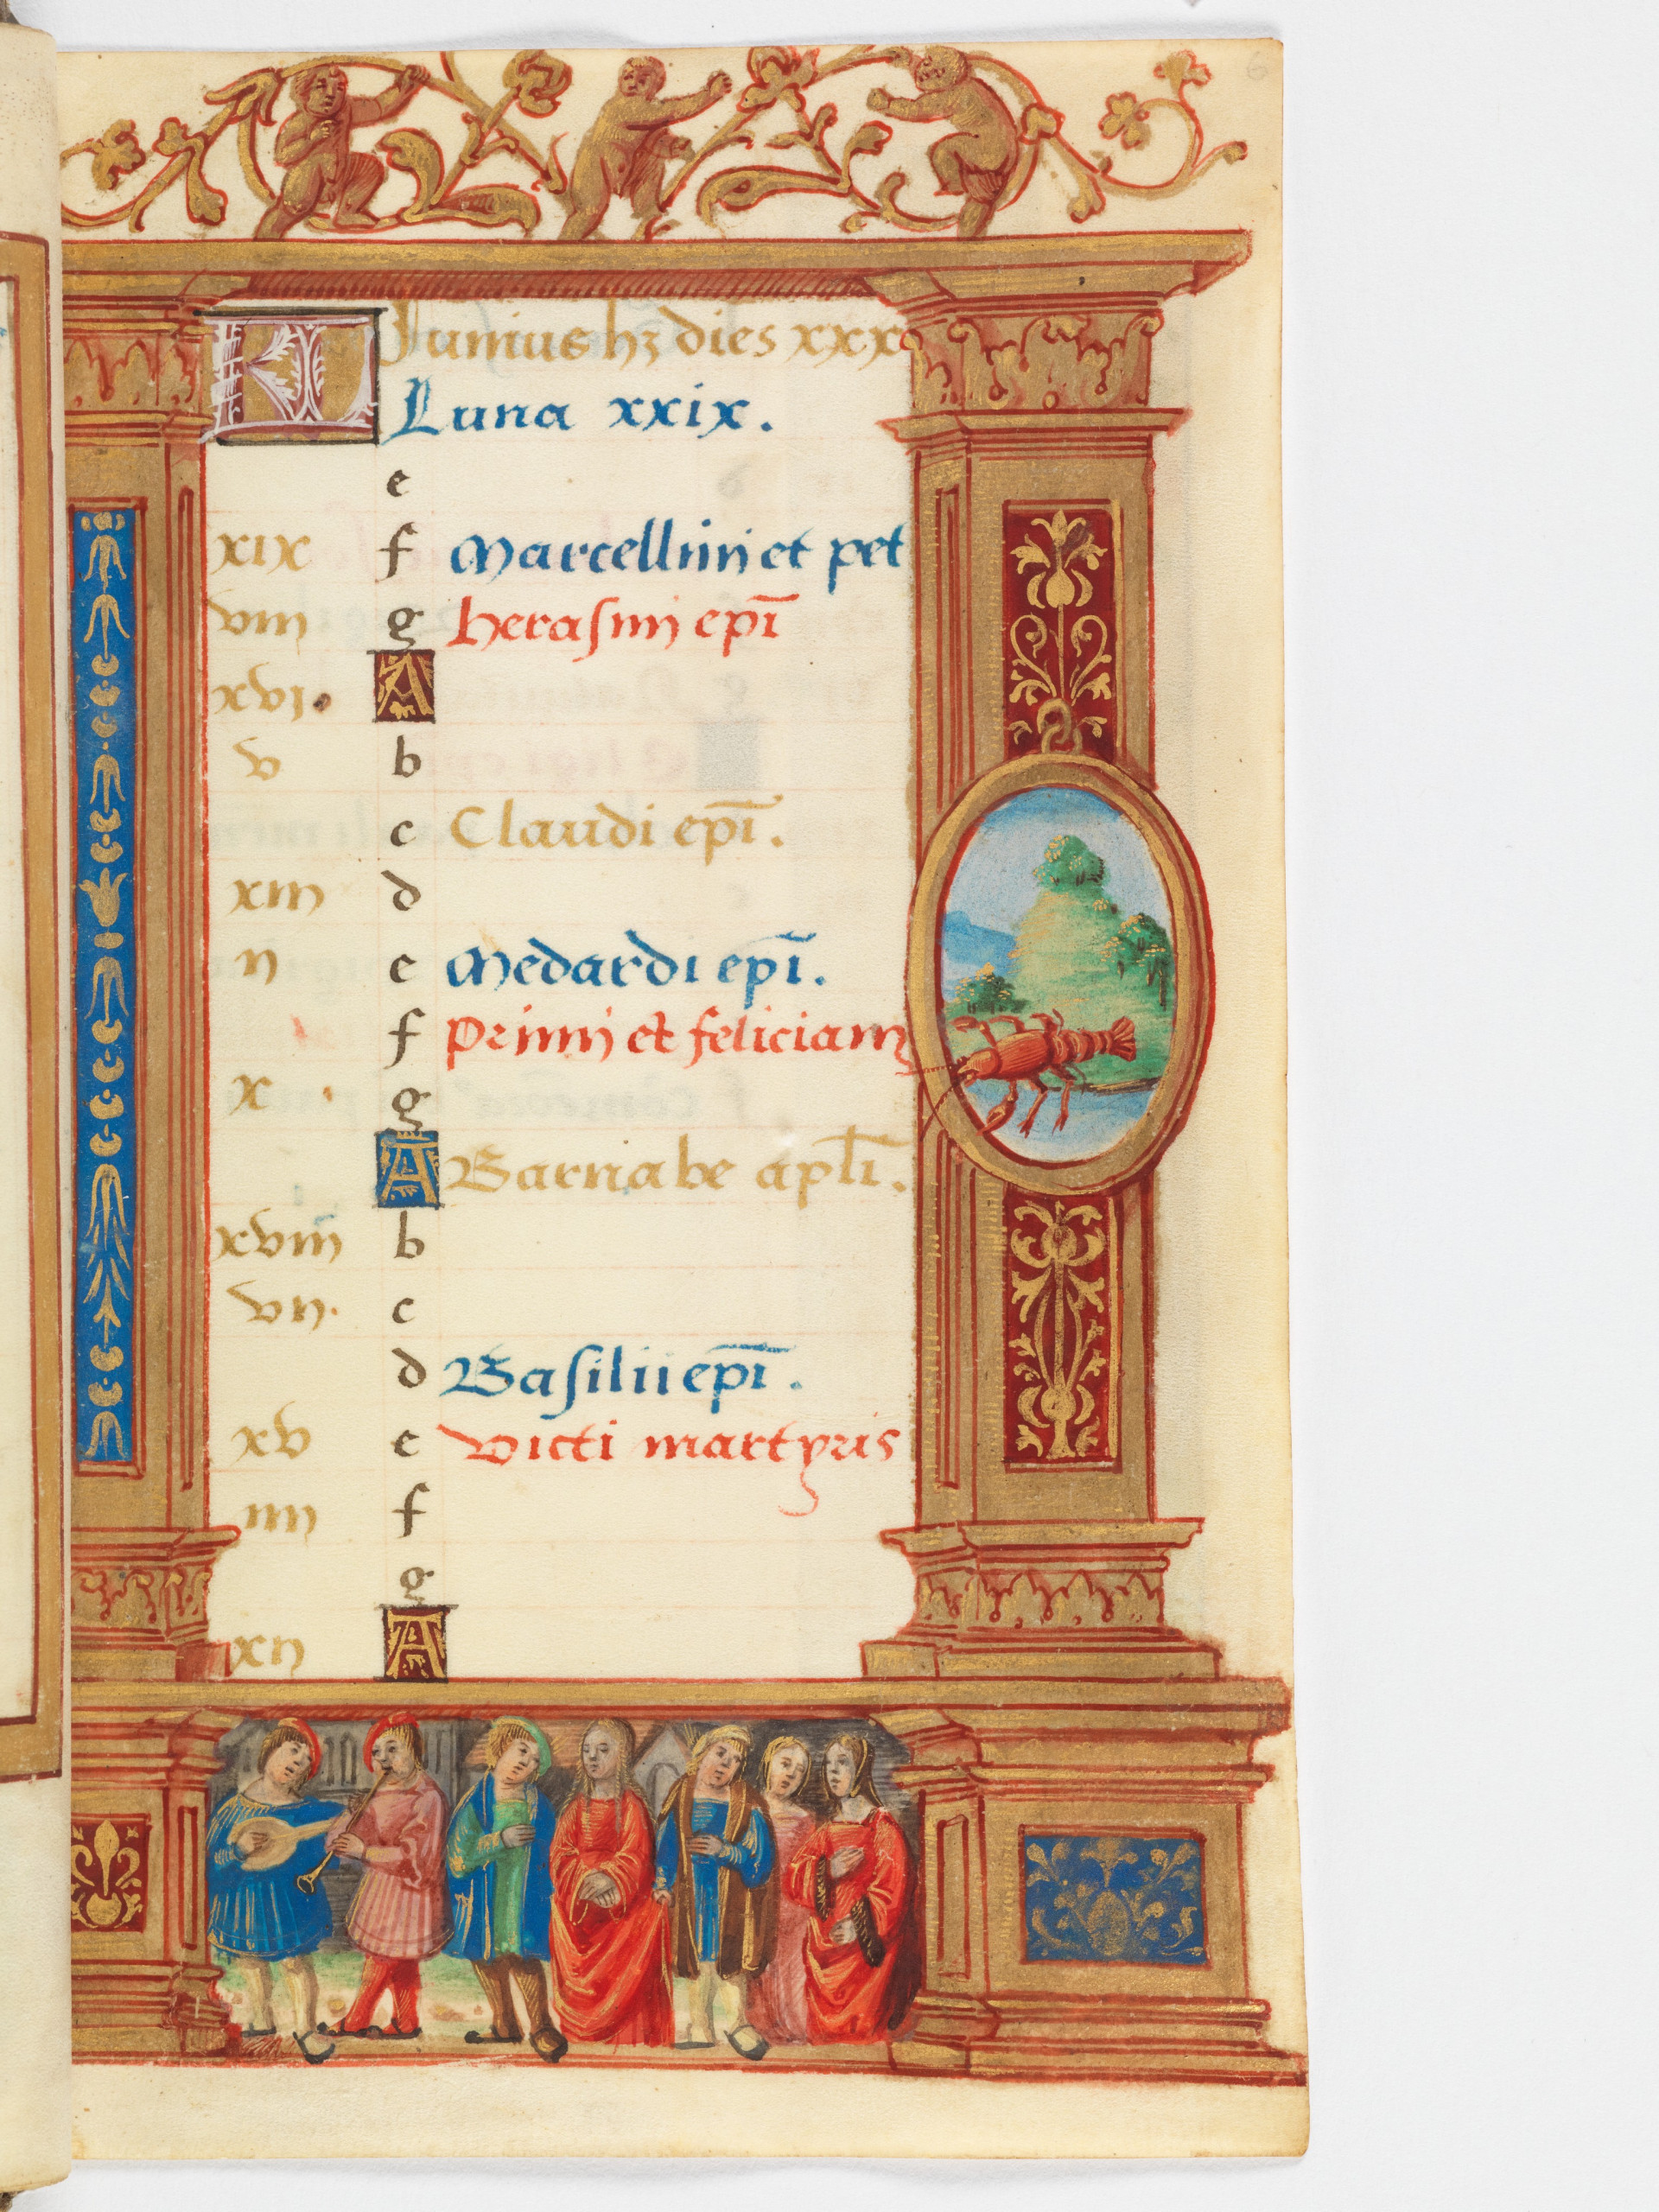 KL Junius hꝫ dies xxx
Luna xxix.
e
xix f Marcellini et pet
viii g herasmi epi̅
xvj. A
v b
c Claudi epi̅.
xiii d
ii e Medardi epi̅.
f Primi et feliciani
x g
A Barnabe apl̅i.
xviii b
vii. c
d Basilii epi̅.
xv e Victi martyris
iiii f
g
xii A
6